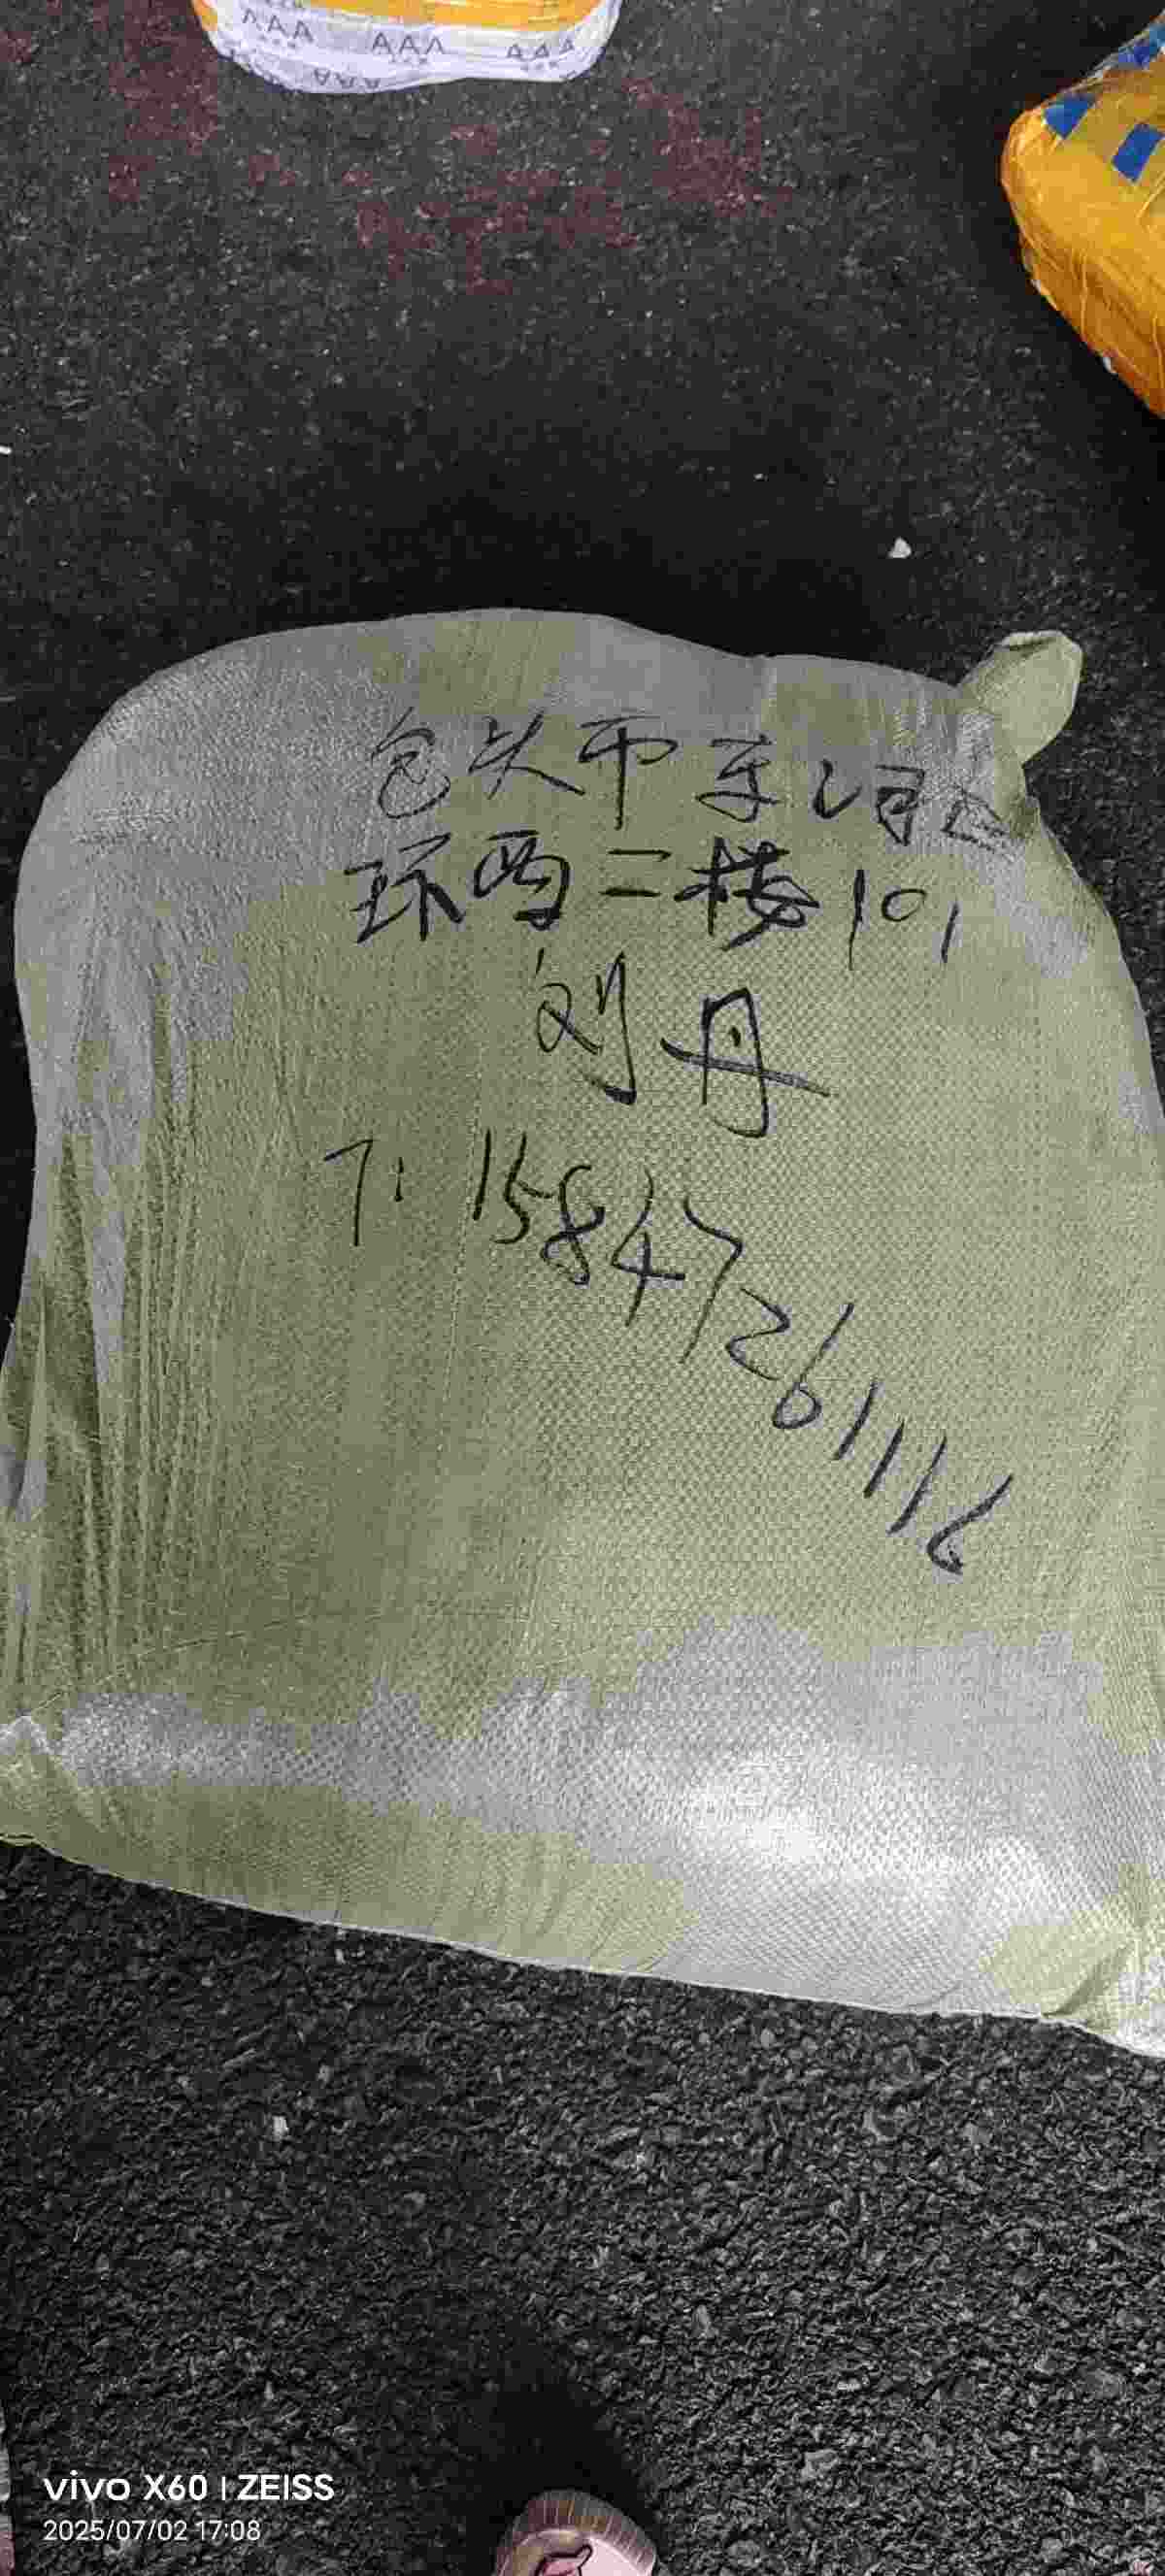 AAA AAA AAA
AAA AAA
包头市东河区
环西二楼101
刘丹
T: 15847261116
vivo X60 | ZEISS
2025/07/02 17:08